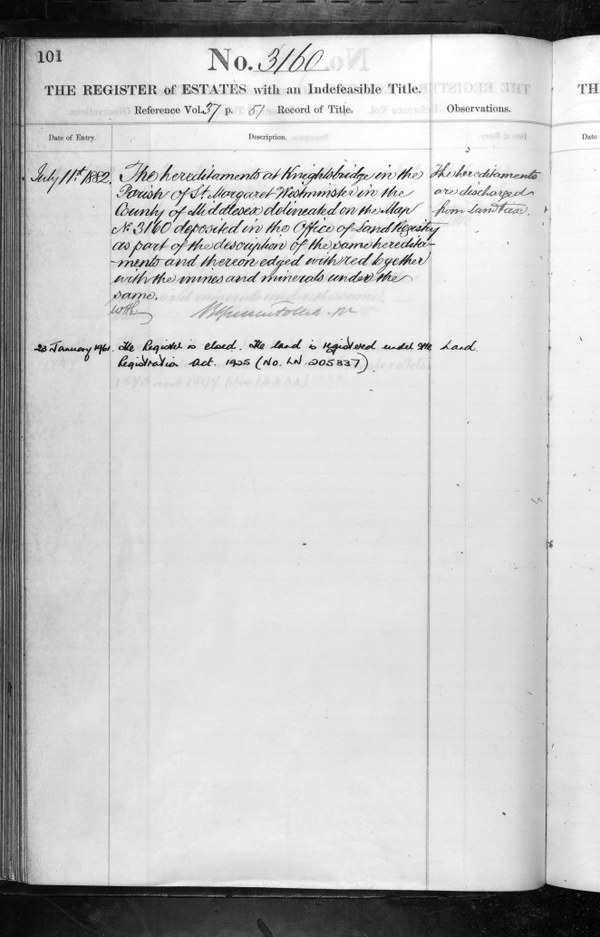 101
No. 3160
THE REGISTER of ESTATES with an Indefeasible Title.
Reference Vol. 37 p. 51 Record of Title.
Observations.
Date of Entry.
Description.
July 11th 1882.
The hereditaments at Knightsbridge in the
Parish of St. Margaret Westminster in the
County of Middlesex delineated on the Map
No. 3160 deposited in the Office of Land Registry
as part of the description of the same heredita-
-ments and thereon edged with red together
with the mines and minerals under the
same.
The hereditaments
are discharged
from land tax.
23 January 1961. The Register is closed. The land is registered under the Land
Registration Act. 1925 (No. LN 205337).
TH
Date